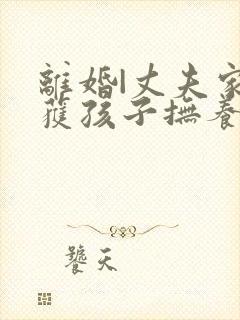 離婚|丈夫家
獲孩子撫養
饕天